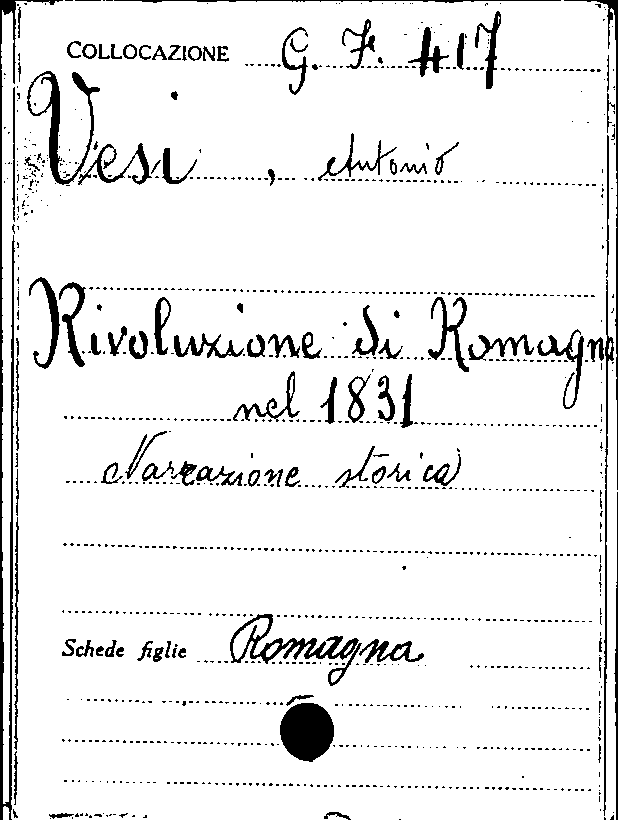 COLLOCAZIONE G. F. 417
Vesi, Antonio
Rivoluzione di Romagna
nel 1831
Narrazione storica
Schede figlie Romagna